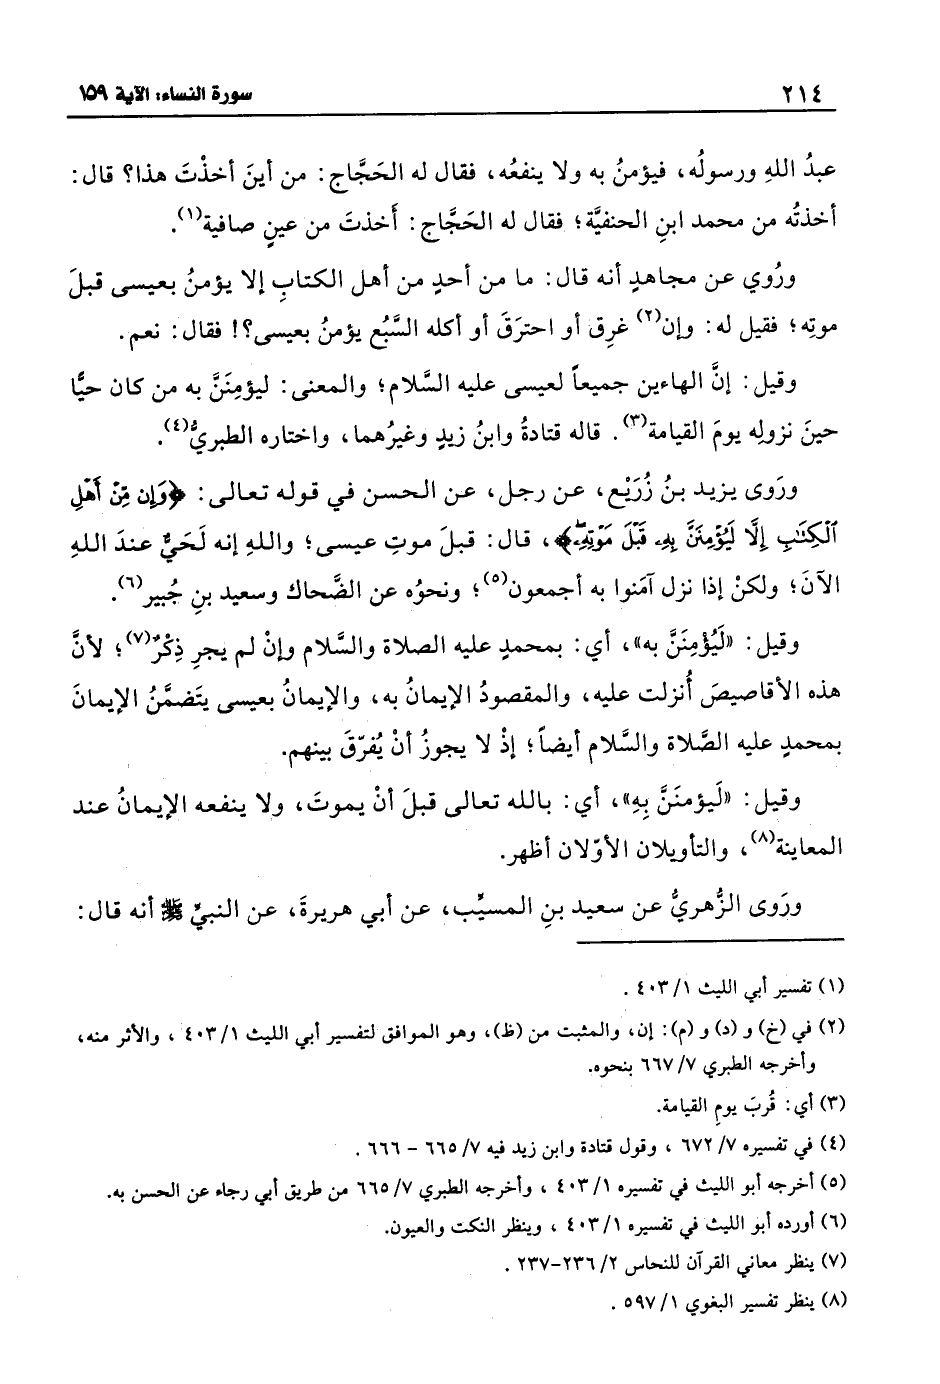 ٢١٤
سورة النساء: الآية ١٥٩
عبدُ اللهِ ورسولُه، فيؤمنُ به ولا ينفعُه، فقال له الحَجَّاج: من أينَ أخذْتَ هذا؟ قال:
أخذتُه من محمد ابنِ الحنفيَّة؛ فقال له الحَجَّاج: أَخذتَ من عينٍ صافية(١).
ورُوي عن مجاهدٍ أنه قال: ما من أحدٍ من أهل الكتابِ إلا يؤمنُ بعيسى قبلَ
موتِه؛ فقيل له: وإن(٢) غرِق أو احترَقَ أو أكله السَّبُع يؤمنُ بعيسى؟! فقال: نعم.
وقيل: إنَّ الهاءين جميعاً لعيسى عليه السَّلام؛ والمعنى: ليؤمنَنَّ به من كان حيًّا
حينَ نزولِه يومَ القيامة(٣). قاله قتادةُ وابنُ زيدٍ وغيرُهما، واختاره الطبريُّ(٤).
ورَوى يزيد بنُ زُرَيْع، عن رجل، عن الحسن في قوله تعالى: ﴿وَإِن مِّنْ أَهْلِ
ٱلْكِتَٰبِ إِلَّا لَيُؤْمِنَنَّ بِهِۦ قَبْلَ مَوْتِهِۦۖ﴾، قال: قبلَ موتِ عيسى؛ واللهِ إنه لَحَيٌّ عندَ اللهِ
الآنَ؛ ولكنْ إذا نزل آمَنوا به أجمعون(٥)؛ ونحوُه عن الضَّحاك وسعيد بنِ جُبير(٦).
وقيل: «لَيُؤْمِنَنَّ به»، أي: بمحمدٍ عليه الصلاة والسَّلام وإنْ لم يجرِ ذِكْرٌ(٧)؛ لأنَّ
هذه الأقاصيصَ أُنزلت عليه، والمقصودُ الإيمانُ به، والإيمانُ بعيسى يتَضمَّنُ الإيمانَ
بمحمدٍ عليه الصَّلاة والسَّلام أيضاً؛ إذْ لا يجوزُ أنْ يُفرّقَ بينهم.
وقيل: «لَيؤمنَنَّ بِهِ»، أي: بالله تعالى قبلَ أنْ يموتَ، ولا ينفعه الإيمانُ عند
المعاينة(٨)، والتأويلان الأوّلان أظهر.
ورَوى الزُّهريُّ عن سعيد بنِ المسيِّب، عن أبي هريرةَ، عن النبيِّ ﷺ أنه قال:
(١) تفسير أبي الليث ١/ ٤٠٣ .
(٢) في (خ) و (د) و (م): إن، والمثبت من (ظ)، وهو الموافق لتفسير أبي الليث ١/ ٤٠٣ ، والأثر منه،
وأخرجه الطبري ٧/ ٦٦٧ بنحوه.
(٣) أي: قُربَ يومِ القيامة.
(٤) في تفسيره ٧/ ٦٧٢ ، وقول قتادة وابن زيد فيه ٧/ ٦٦٥ - ٦٦٦ .
(٥) أخرجه أبو الليث في تفسيره ١/ ٤٠٣ ، وأخرجه الطبري ٧/ ٦٦٥ من طريق أبي رجاء عن الحسن به.
(٦) أورده أبو الليث في تفسيره ١/ ٤٠٣ ، وينظر النكت والعيون.
(٧) ينظر معاني القرآن للنحاس ٢/ ٢٣٦-٢٣٧ .
(٨) ينظر تفسير البغوي ١/ ٥٩٧ .